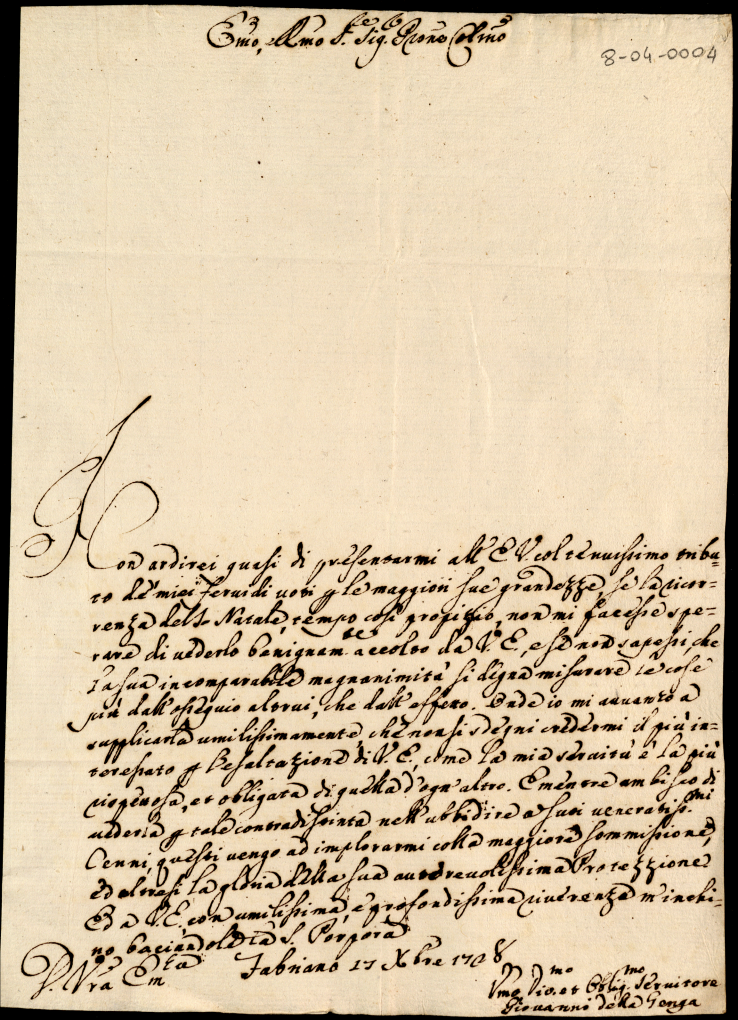 Emo, e Rmo Sre Sig. Prone Colmo
8-04-0004
Non ardirei quasi di presentarmi all' E V col tenuissimo tribu=
to de' miei fervidi voti p le maggiori sue grandezze, se la ricor=
renza del S. Natale, tempo così propizio, non mi facesse spe=
rare di vederlo benignam.te accolto da V. E., e se non sapessi, che
la sua incomparabile magnanimità si degna misurare le cose
più dall' ossequio altrui, che dall' effetto. Onde io mi avanzo a
supplicarla umilissimamente che non si sdegni credermi il più in=
teressato p l'esaltazione di V. E., come la mia servitù è la più
rispettosa, et obligata di quella d'ogn' altro. E mentre ambisco di
vederla p tale contradistinta nell' ubbidire a suoi veneratiss.mi
Cenni, questi vengo ad implorarmi colla maggiore sommissione,
ed altresì la gloria della sua autorevolissima Protezzione
Ed a V. E. con umilissima, e profondissima riverenza m'inchi=
no baciandole la S. Porpora
D. Vra Emza Fabriano 17 Xbre 1708
Umo Divmo et Obligmo Servitore
Giovanni della Genga